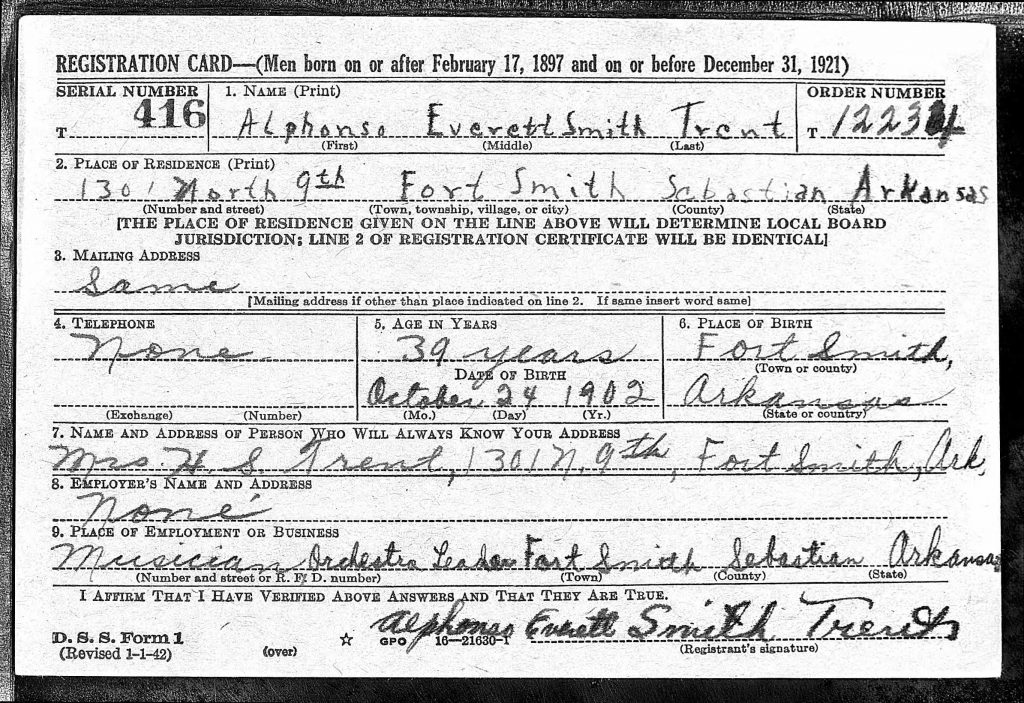 REGISTRATION CARD—(Men born on or after February 17, 1897 and on or before December 31, 1921)
SERIAL NUMBER 1. NAME (Print) ORDER NUMBER
T 416 Alphonso Everett Smith Trent T 12234
(First) (Middle) (Last)
2. PLACE OF RESIDENCE (Print)
1301 North 9th Fort Smith Sebastian Arkansas
(Number and street) (Town, township, village, or city) (County) (State)
[THE PLACE OF RESIDENCE GIVEN ON THE LINE ABOVE WILL DETERMINE LOCAL BOARD
JURISDICTION; LINE 2 OF REGISTRATION CERTIFICATE WILL BE IDENTICAL]
3. MAILING ADDRESS
Same
[Mailing address if other than place indicated on line 2. If same insert word same]
4. TELEPHONE 5. AGE IN YEARS 6. PLACE OF BIRTH
None 39 years Fort Smith,
DATE OF BIRTH (Town or county)
October 24 1902 Arkansas
(Exchange) (Number) (Mo.) (Day) (Yr.) (State or country)
7. NAME AND ADDRESS OF PERSON WHO WILL ALWAYS KNOW YOUR ADDRESS
Mrs. H. S Trent, 1301 N. 9th, Fort Smith, Ark,
8. EMPLOYER'S NAME AND ADDRESS
None
9. PLACE OF EMPLOYMENT OR BUSINESS
Musician Orchestra Leader Fort Smith Sebastian Arkansas
(Number and street or R. F. D. number) (Town) (County) (State)
I AFFIRM THAT I HAVE VERIFIED ABOVE ANSWERS AND THAT THEY ARE TRUE.
Alphonso Everett Smith Trent
D. S. S. Form 1 ☆ GPO 16—21630-1
(Revised 1-1-42) (over) (Registrant's signature)